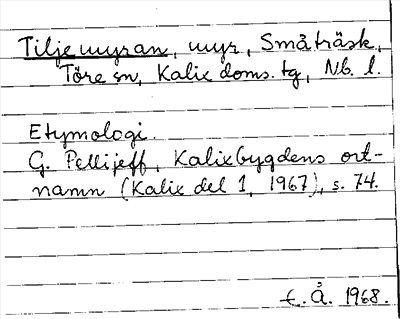 Tiljemyran, myr, Småträsk,
Töre sn, Kalix doms. tg, Nb. l.
Etymologi.
G. Pellijeff, Kalixbygdens ort-
namn (Kalix del 1, 1967), s. 74.
E. Å. 1968.